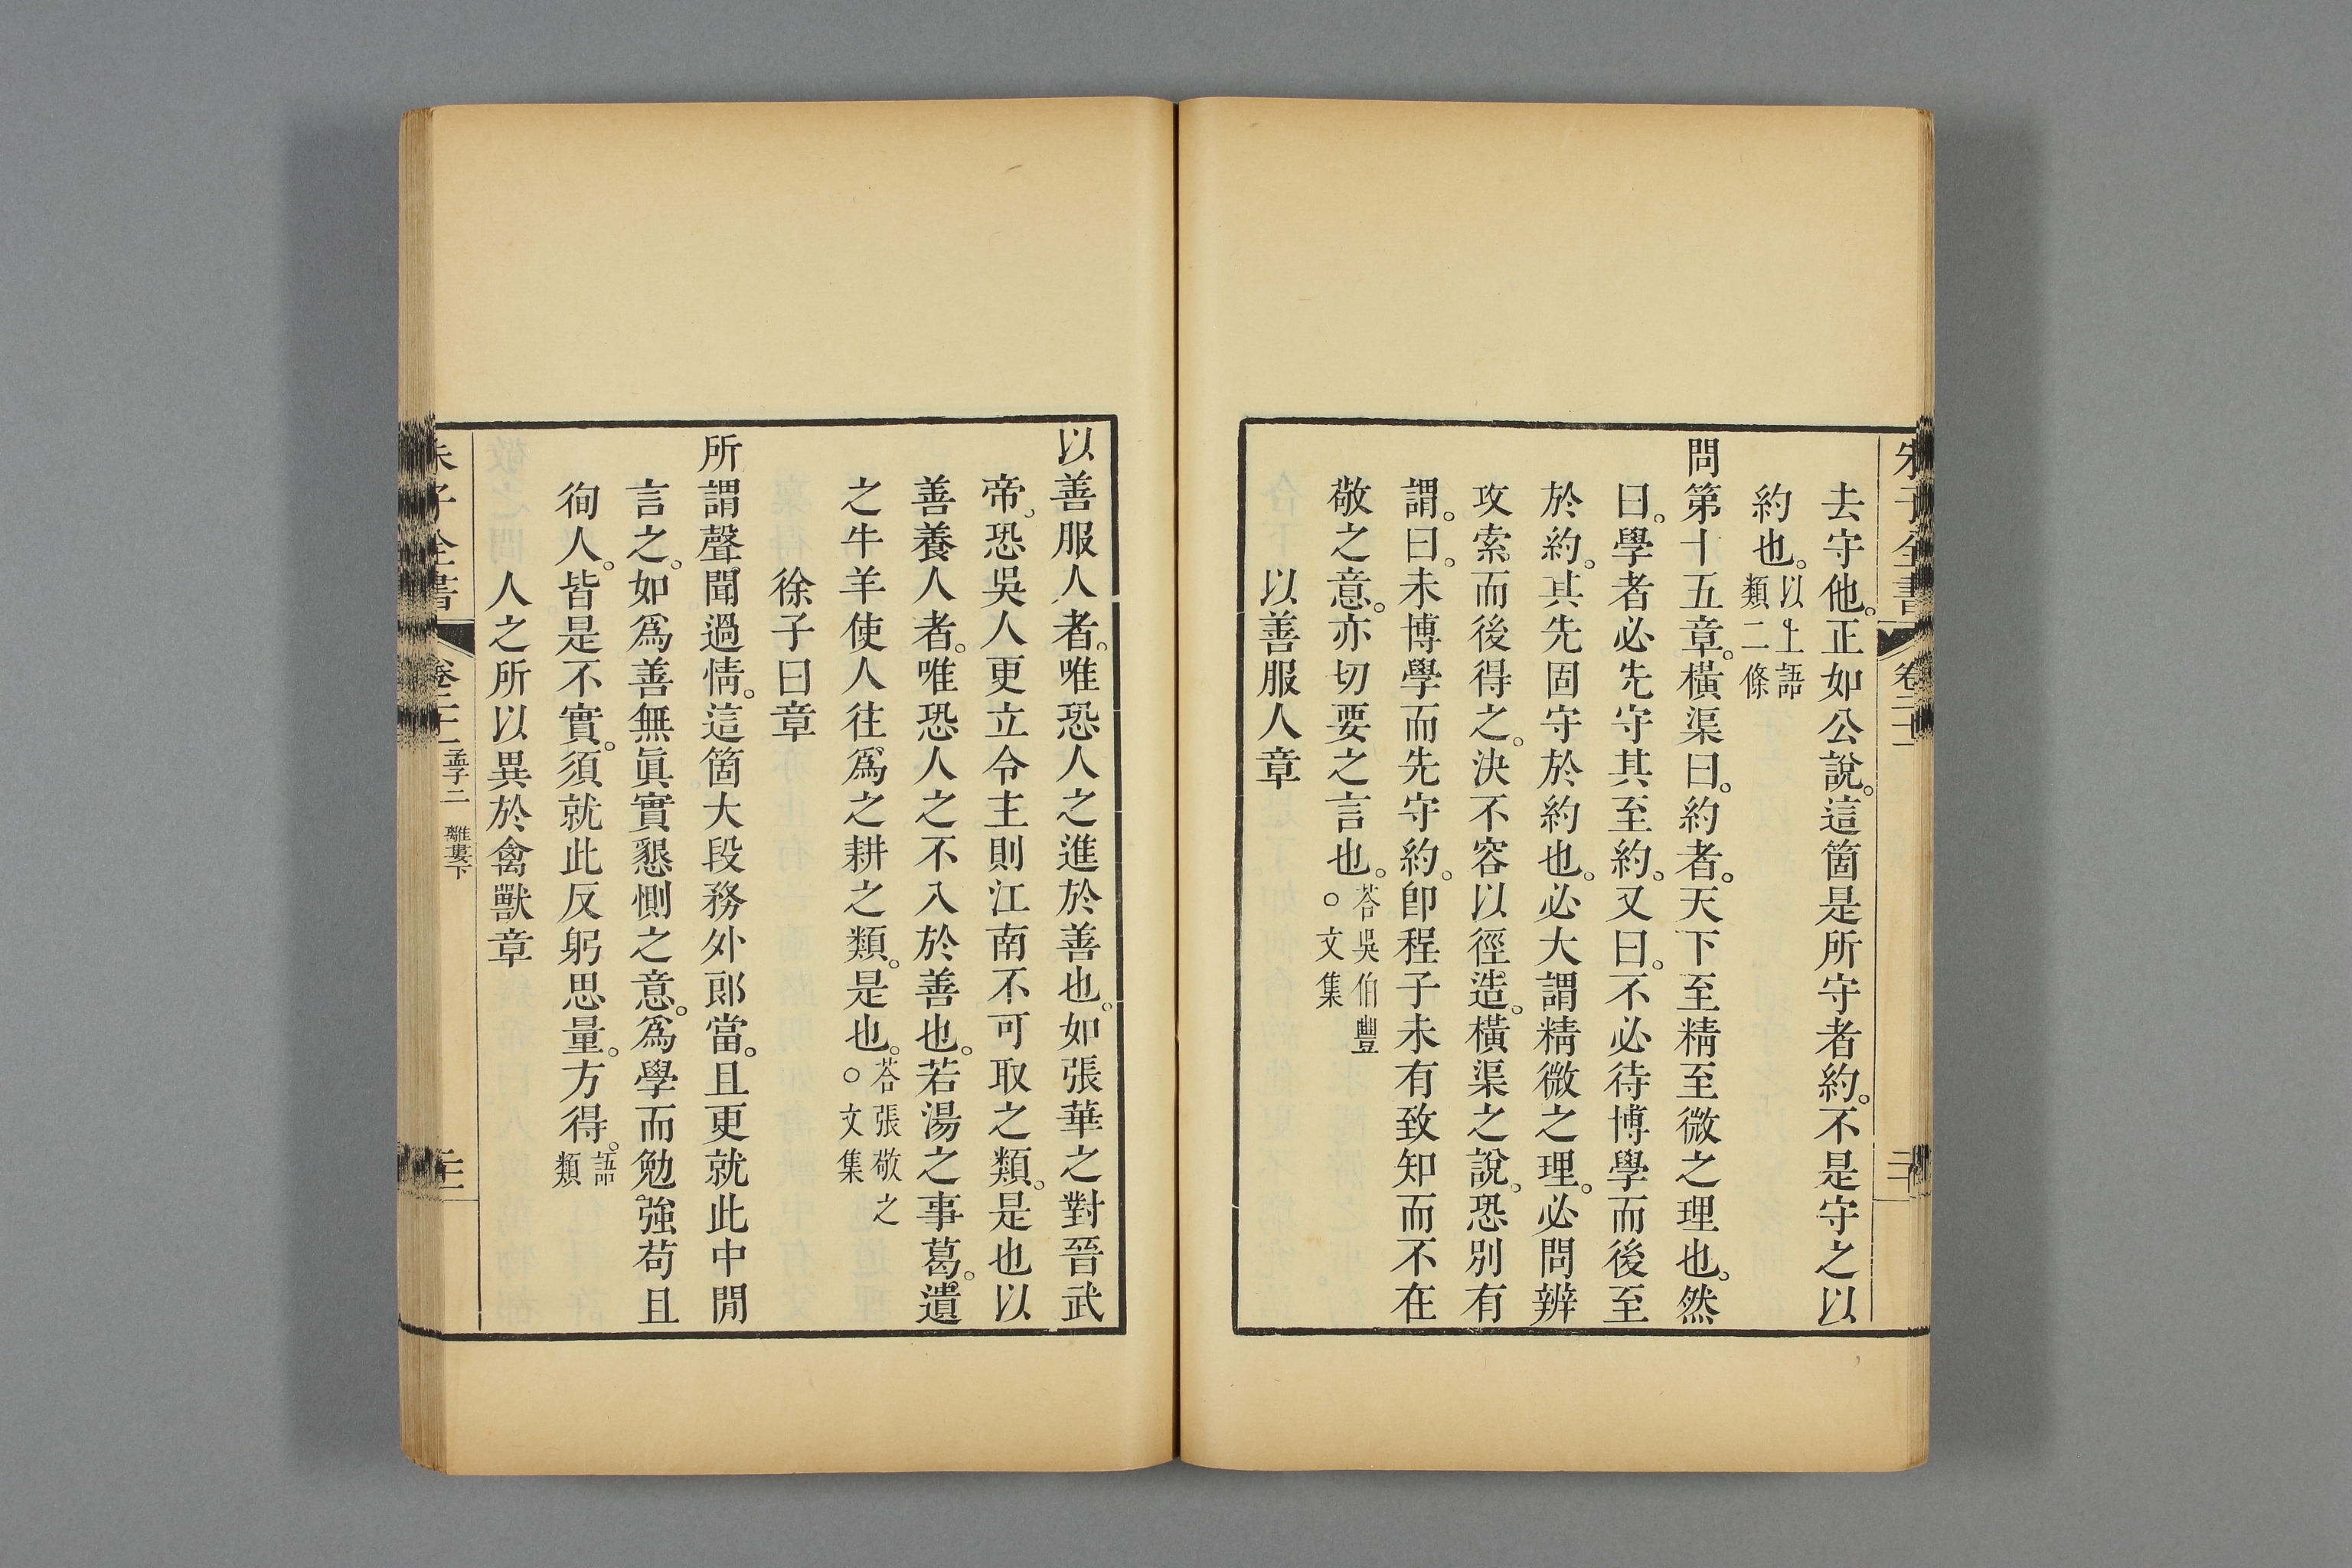 去守他。正如公說。這箇是所守者約。不是守之以
約也。以上語類二條
問第十五章。橫渠曰。約者。天下至精至微之理也。然
曰。學者必先守其至約。又曰。不必待博學而後至
於約。其先固守於約也。必大謂精微之理。必問辨
攻索而後得之。決不容以徑造。橫渠之說。恐別有
謂。曰。未博學而先守約。卽程子未有致知而不在
敬之意。亦切要之言也。答吳伯豐○文集
以善服人章
以善服人者。唯恐人之進於善也。如張華之對晉武
帝。恐吳人更立令主則江南不可取之類。是也以
善養人者。唯恐人之不入於善也。若湯之事葛。遺
之牛羊使人往爲之耕之類。是也。答張敬之○文集
徐子曰章
所謂聲聞過情。這箇大段務外郞當。且更就此中閒
言之。如爲善無眞實懇惻之意。爲學而勉強苟且
徇人。皆是不實。須就此反躬思量。方得。語類
人之所以異於禽獸章
孟子二 離婁下